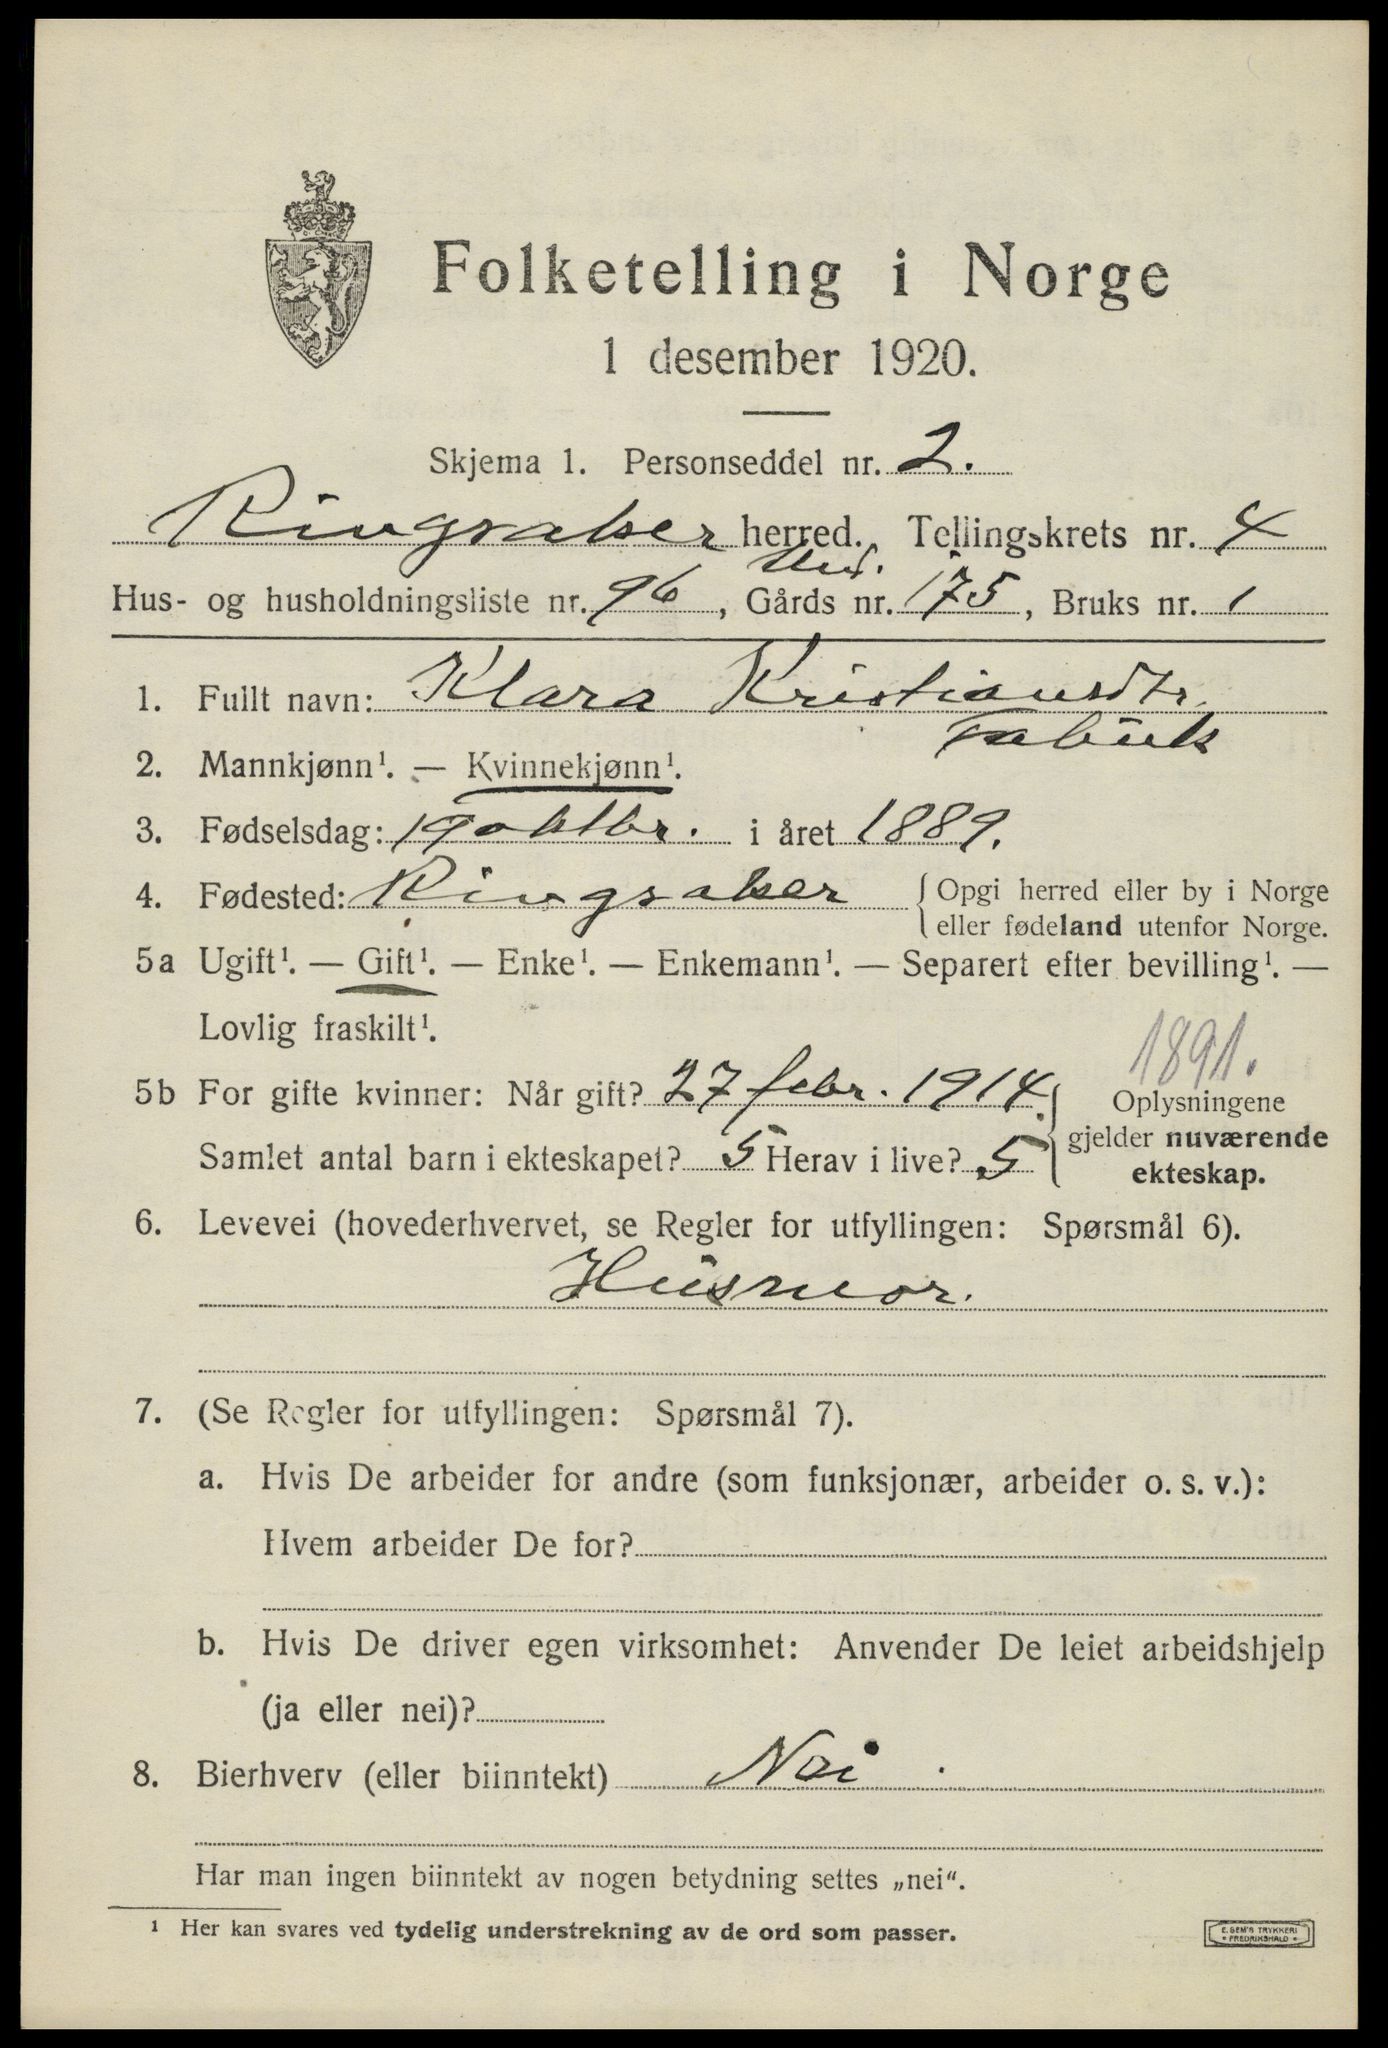 Folketelling i Norge
1 desember 1920.
Skjema 1. Personseddel nr. 2.
Ringsaker herred. Tellingskrets nr. 4
Hus- og husholdningsliste nr. 96, Gårds nr. 175, Bruks nr. 1
1. Fullt navn: Klara Kristiansdtr.
2. Mannkjønn¹. — Kvinnekjønn¹.
3. Fødselsdag: 19 oktbr. i året 1889.
4. Fødested: Ringsaker { Opgi herred eller by i Norge
eller fødeland utenfor Norge.
5a Ugift¹. — Gift¹. — Enke¹. — Enkemann¹. — Separert efter bevilling¹. —
Lovlig fraskilt¹.
1891.
5b For gifte kvinner: Når gift? 27 febr. 1914. Oplysningene
gjelder nuværende
Samlet antal barn i ekteskapet? 5 Herav i live? 5 ekteskap.
6. Levevei (hovederhvervet, se Regler for utfyllingen: Spørsmål 6).
Husmor.
7. (Se Regler for utfyllingen: Spørsmål 7).
a. Hvis De arbeider for andre (som funksjonær, arbeider o. s. v.):
Hvem arbeider De for?
b. Hvis De driver egen virksomhet: Anvender De leiet arbeidshjelp
(ja eller nei)?
8. Bierhverv (eller biinntekt) Nei.
Har man ingen biinntekt av nogen betydning settes „nei“.
¹ Her kan svares ved tydelig understrekning av de ord som passer.
E. SEM'S TRYKKERI
• FREDRIKSHALD •